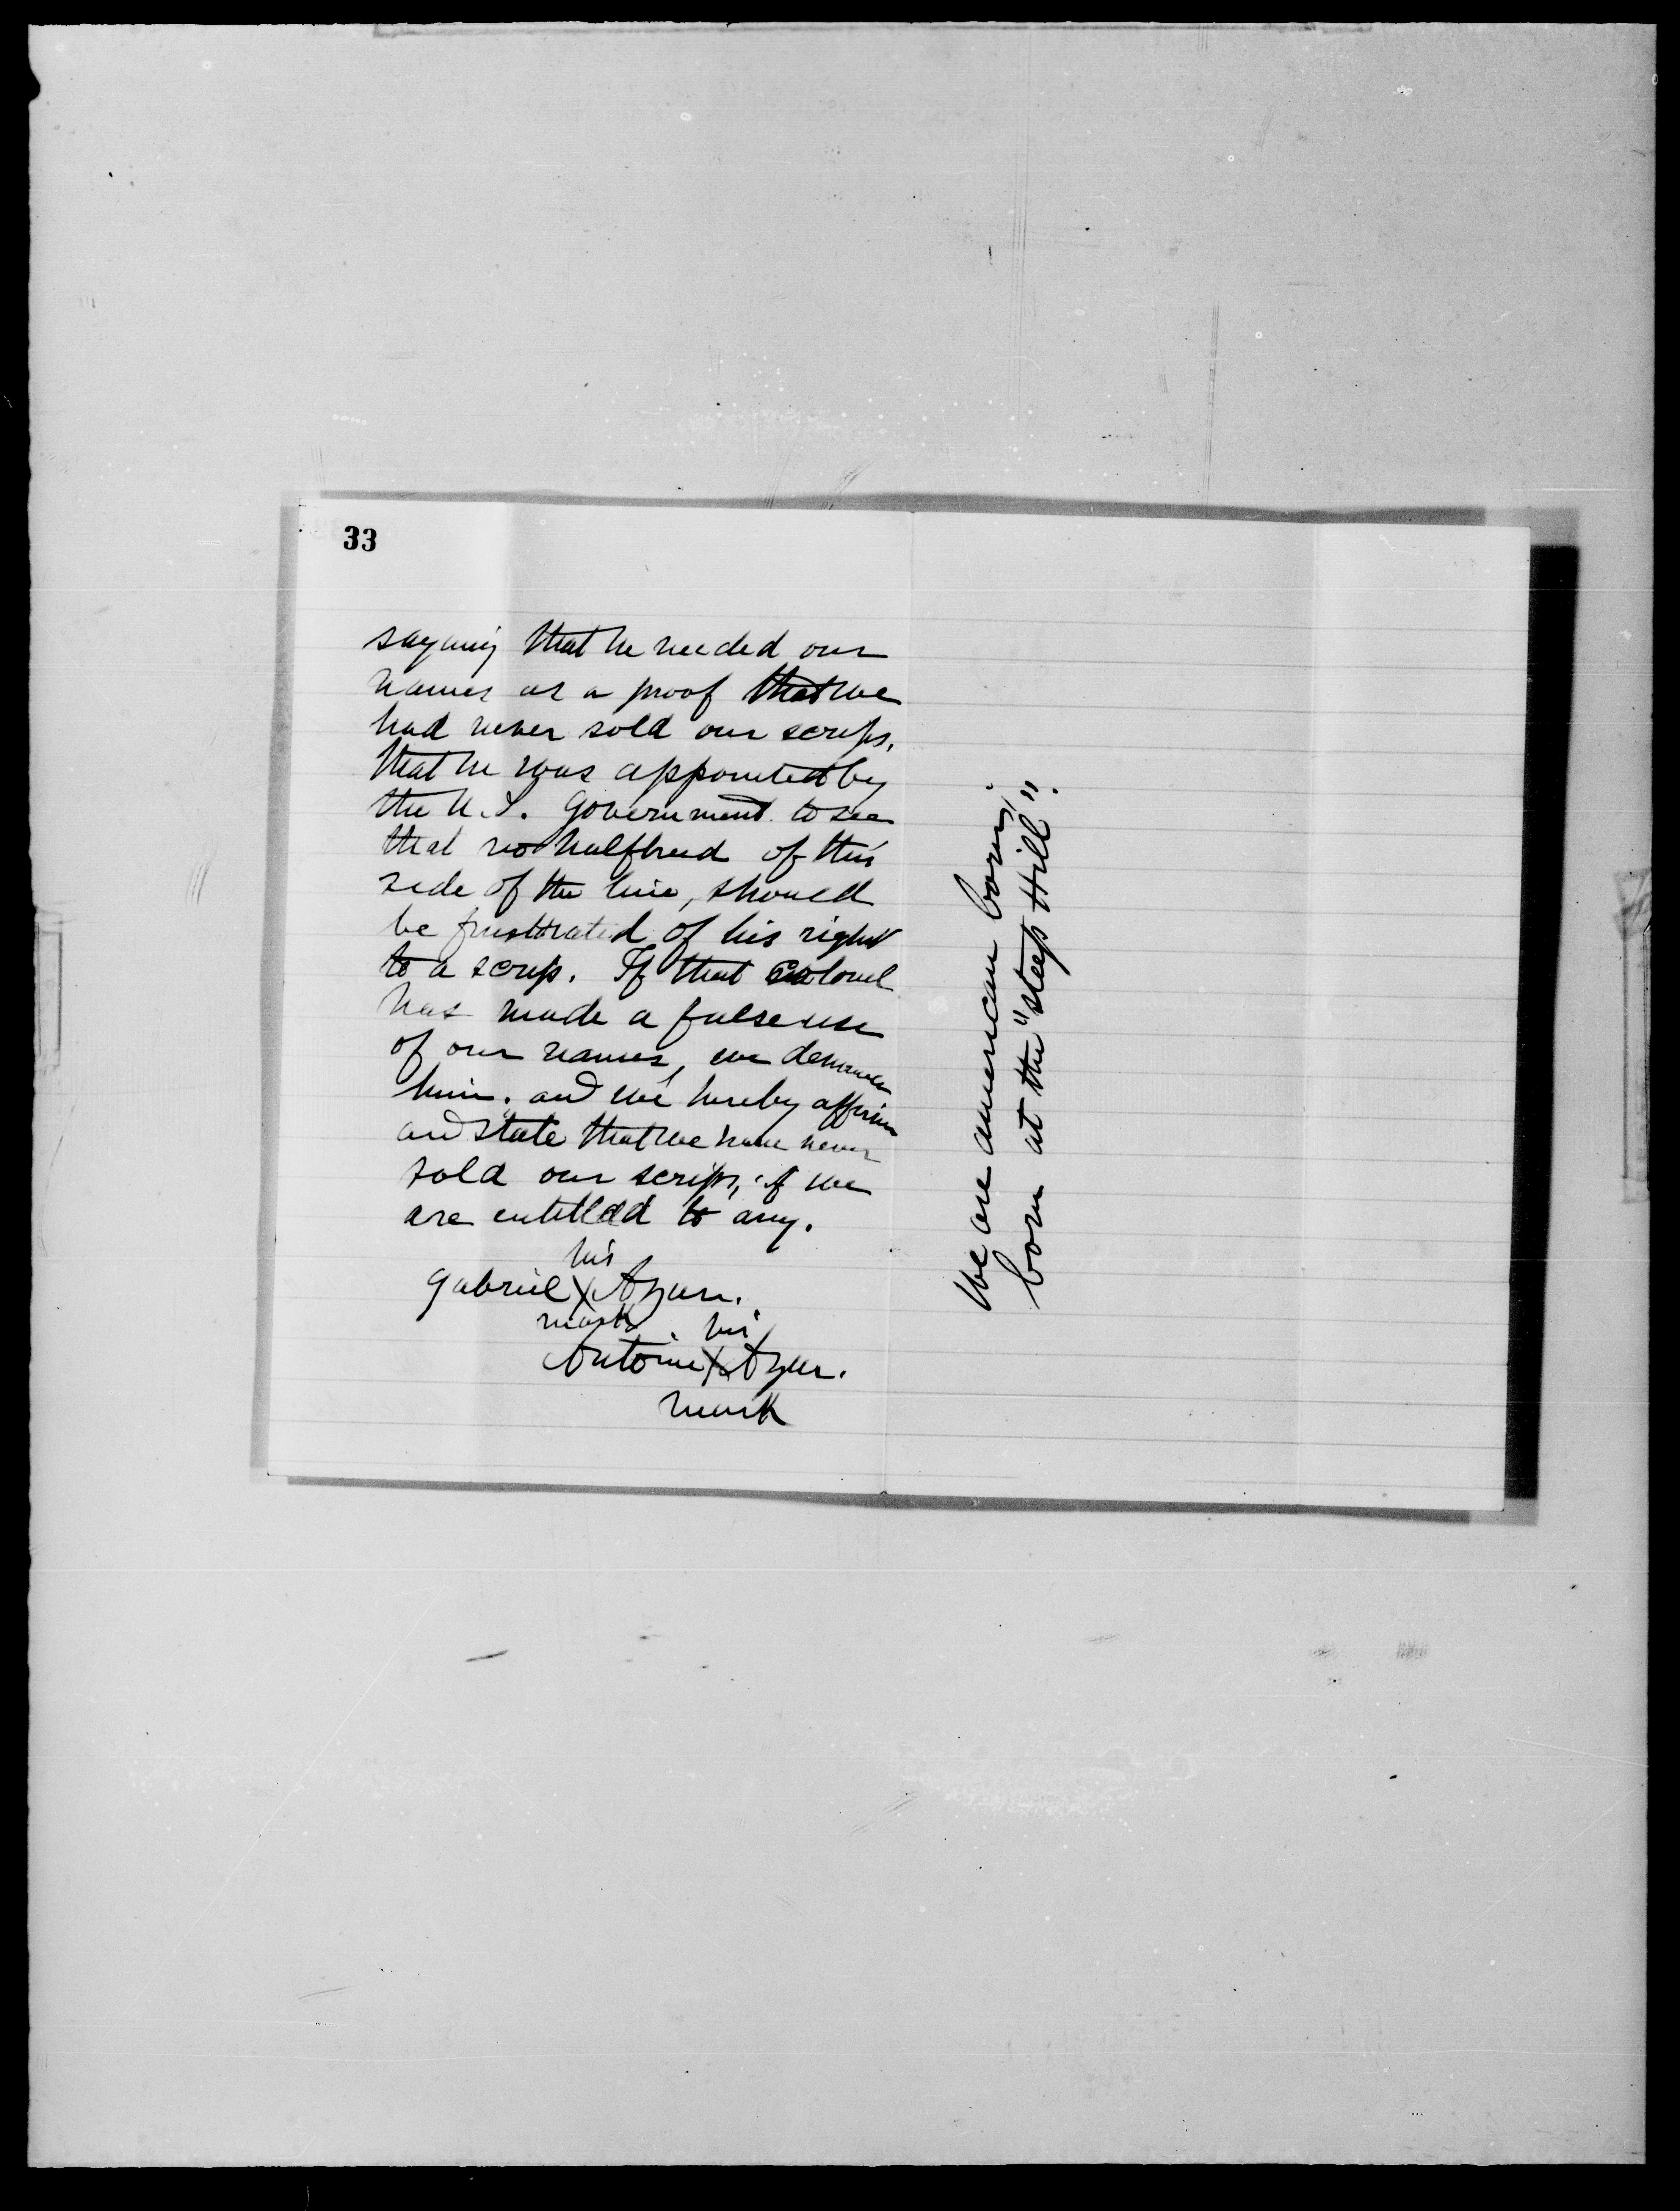 33
sayinig that he needed our
names as a proof that we
had never sold our scrips,
that he was appointed by
the U.S. Government to see
that no halfbreed of this
side of the line, should
be frusttrated of his right
to a scrip. If that Colonel
has made a false use
of our names, we denounce
him. and we hereby affirm
and state that we have never
sold our scrips, if we
are entitled to any.
his
Gabriel X Azure.
mark his
Antoine X Azur.
mark
We are american borns,
born at the "steep Hill".